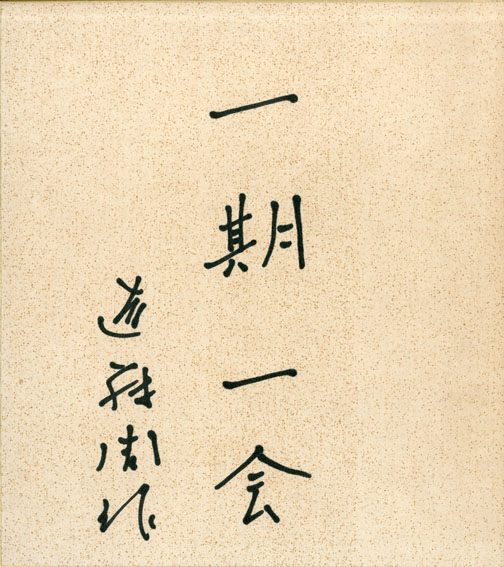 一期一会
遠藤周作